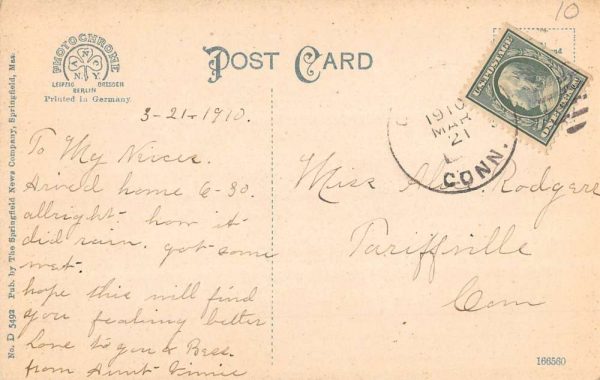 10
PHOTOCHROME
A N C
N. Y.
LEIPZIG DRESDEN
BERLIN
Printed in Germany
POST CARD
U.S. POSTAGE
1910
MAR
21
CONN.
3-21-1910.
To My Nieces.
Arived home 6-30.
allright - how it
did rain. got some
wet.
hope this will find
you fealing better
Love to you & Bess.
from Aunt Vinnie
Miss Rodgers
Tariffville
Conn
No. D 5492 Pub. by The Springfield News Company, Springfield, Mas
166560